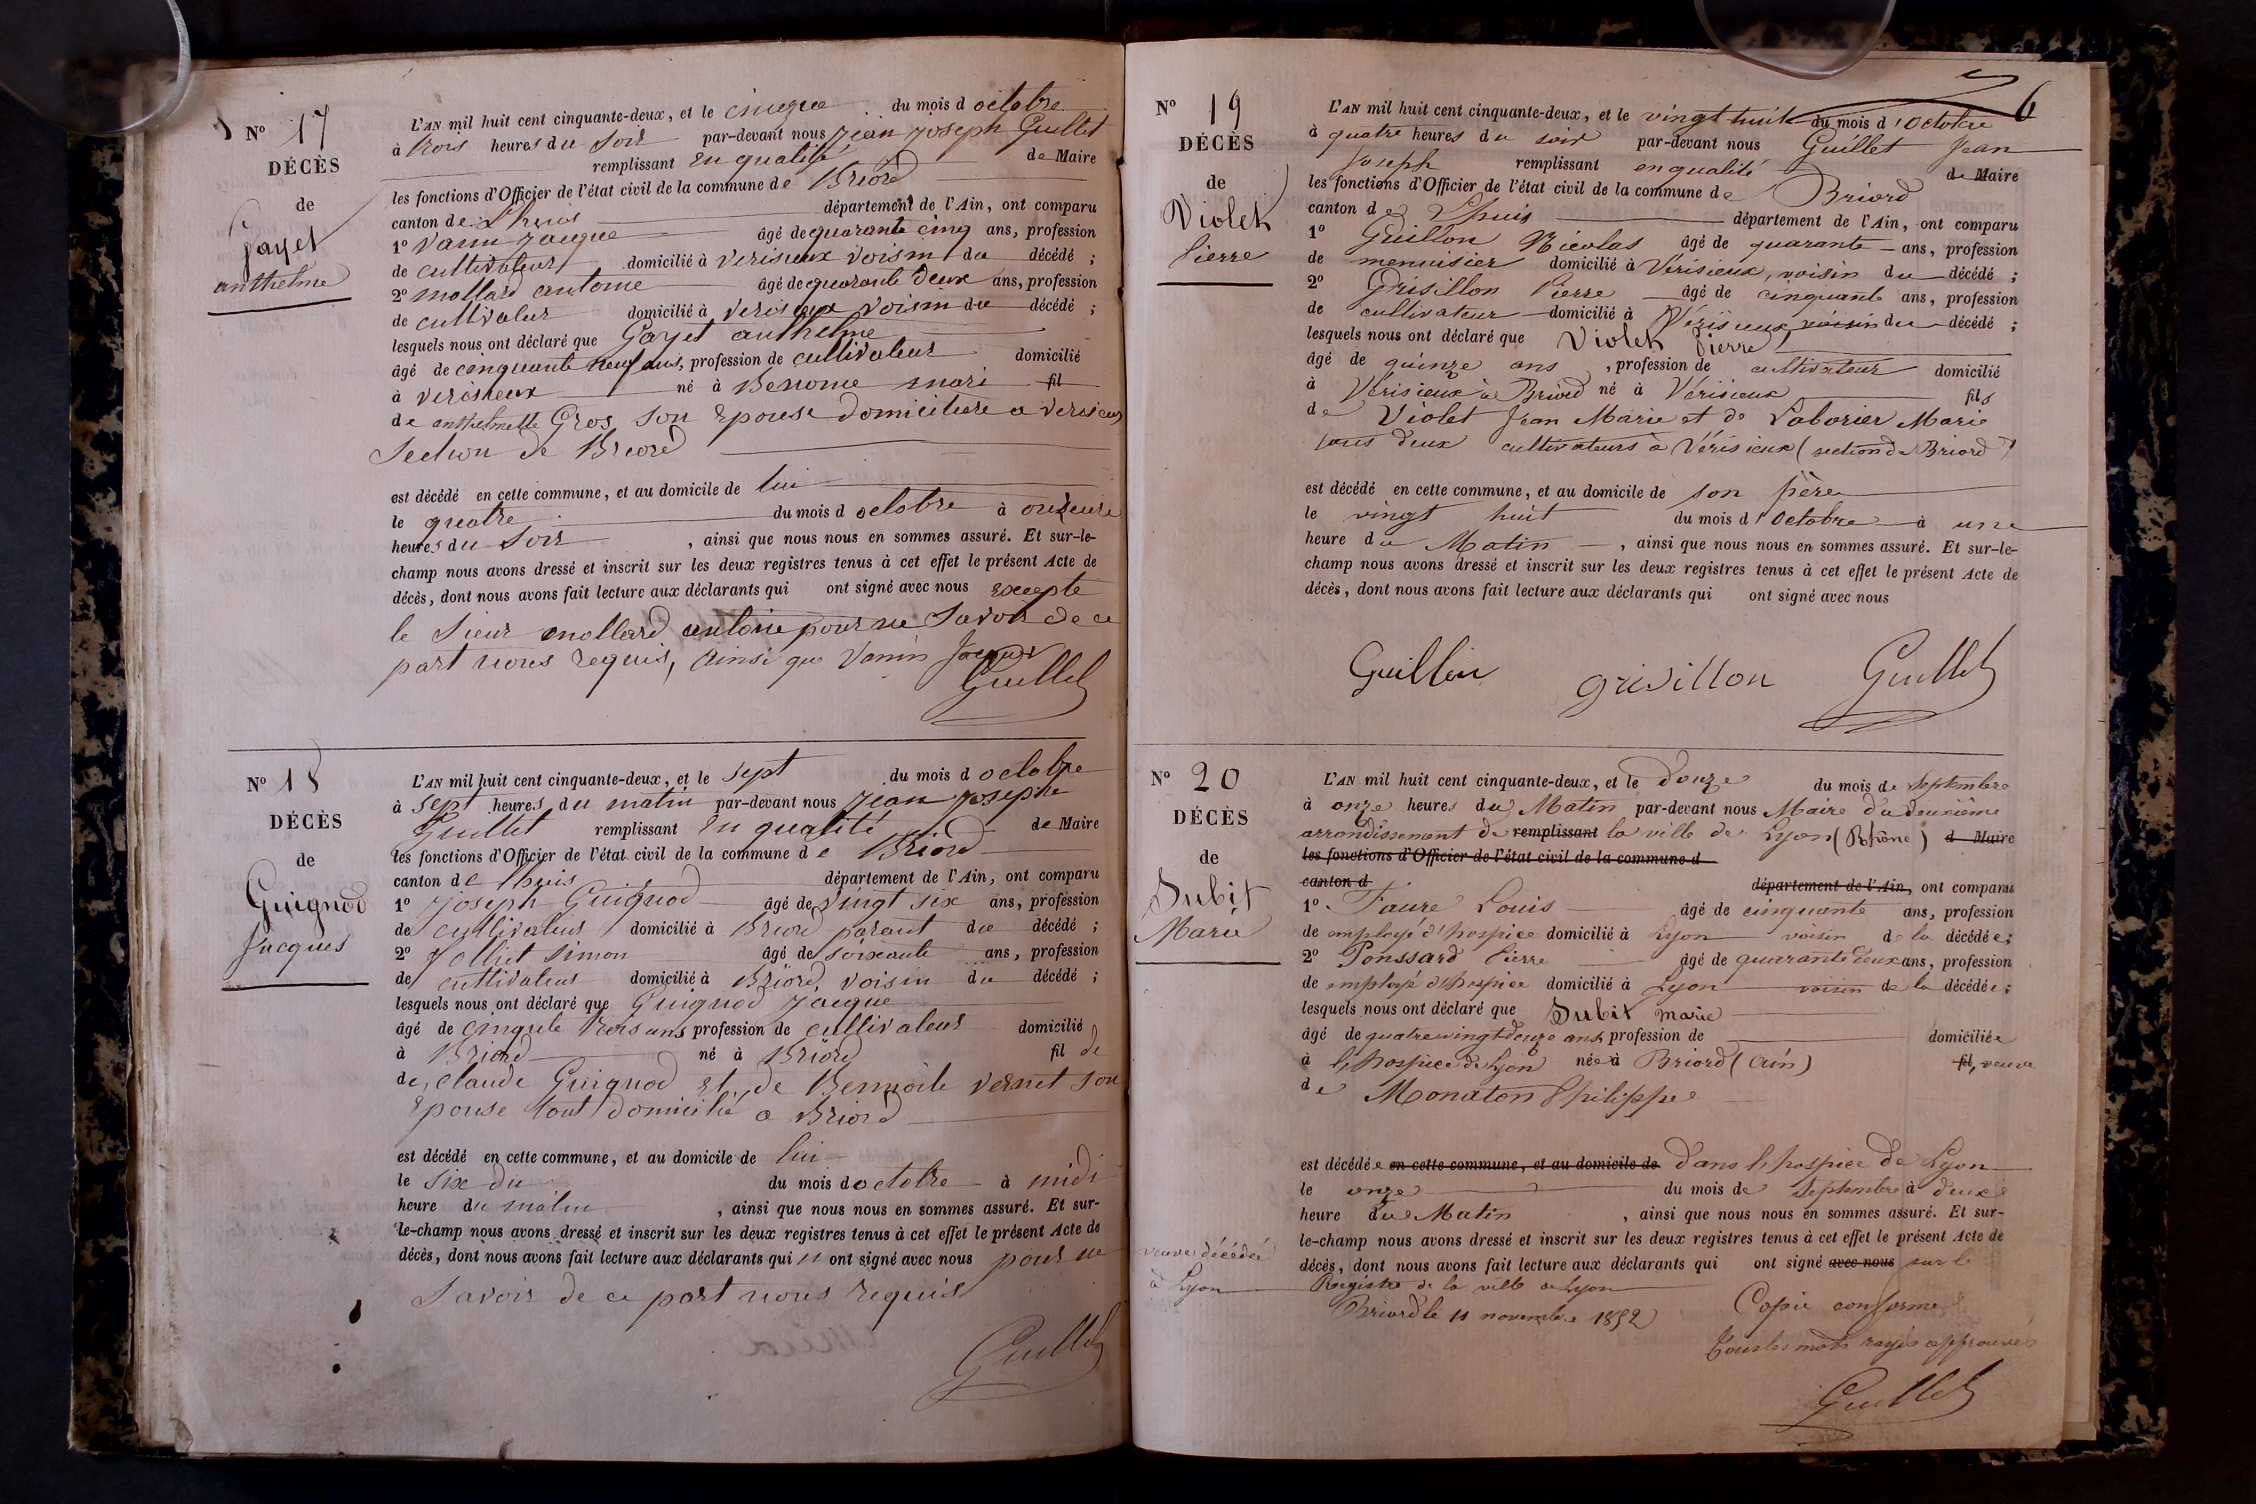 N° 17
DÉCÈS
de
Gayet
anthelme
L'AN mil huit cent cinquante-deux, et le cinque du mois d octobre
à trois heures du soir par-devant nous jean joseph Guillet
remplissant en qualité de Maire
les fonctions d'Officier de l'état civil de la commune de Briord
canton de Lhuis département de l'Ain, ont comparu
1° vanin jacque âgé de quarante cinq ans, profession
de cultivateur domicilié à verisieux voisin du décédé ;
2° mollard antoine âgé de quarante deux ans, profession
de cultivateur domicilié à verisieux voisin du décédé ;
lesquels nous ont déclaré que Gayet anthelme
âgé de cinquante neuf ans, profession de cultivateur domicilié
à verisieux né à Benonce mari fil
de anthelmette Gros son epouse domiciliere a verisieux
section de Briord
est décédé en cette commune, et au domicile de lui
le quatre du mois d octobre à onzeure
heures du soir , ainsi que nous nous en sommes assuré. Et sur-le-
champ nous avons dressé et inscrit sur les deux registres tenus à cet effet le présent Acte de
décès, dont nous avons fait lecture aux déclarants qui ont signé avec nous excepte
le sieur mollard antoine pour ne savoir de ce
part nous requis, ainsi que Vanin Jacques
Guillet
N° 18
DÉCÈS
de
Guignod
Jacques
L'AN mil huit cent cinquante-deux, et le sept du mois d octobre
à sept heures du matin par-devant nous jean josephe
Guillet remplissant en qualité de Maire
les fonctions d'Officier de l'état civil de la commune de Briord
canton de lhuis département de l'Ain, ont comparu
1° joseph Guignod âgé de vingt six ans, profession
de cultivateur domicilié à Briord parant du décédé ;
2° jolliet simon âgé de soixante ans, profession
de cultivateur domicilié à Briord, voisin du décédé ;
lesquels nous ont déclaré que Guignod jacque
âgé de cinqute trois ans profession de cultivateur domicilié
à Briord né à Briord fil de
de claude Guignod et de Bennoite vernet son
epouse tout domicilié a Briord
est décédé en cette commune, et au domicile de lui
le six du du mois d octobre à midi
heure du matin , ainsi que nous nous en sommes assuré. Et sur-
le-champ nous avons dressé et inscrit sur les deux registres tenus à cet effet le présent Acte de
décès, dont nous avons fait lecture aux déclarants qui n ont signé avec nous pour ne
savoir de ce part nous requis
Guillet
6
N° 19
DÉCÈS
de
Violet
Pierre
L'AN mil huit cent cinquante-deux, et le vingt huit du mois d'Octobre
à quatre heures du soir par-devant nous Guillet Jean
Joseph remplissant en qualité de Maire
les fonctions d'Officier de l'état civil de la commune de Briord
canton de Lhuis département de l'Ain, ont comparu
1° Guillon Nicolas âgé de quarante ans, profession
de menuisier domicilié à Vérisieux, voisin du décédé ;
2° Grisillon Pierre âgé de cinquante ans, profession
de cultivateur domicilié à Vérisieux, voisin du décédé ;
lesquels nous ont déclaré que Violet Pierre
âgé de quinze ans , profession de cultivateur domicilié
à Vérisieux à Briord né à Vérisieux fils
de Violet Jean Marie et de Laborier Marie
tous deux cultivateurs à Vérisieux (section de Briord)
est décédé en cette commune, et au domicile de son père
le vingt huit du mois d'Octobre à une
heure du Matin , ainsi que nous nous en sommes assuré. Et sur-le-
champ nous avons dressé et inscrit sur les deux registres tenus à cet effet le présent Acte de
décès, dont nous avons fait lecture aux déclarants qui ont signé avec nous
Guillon grisillon Guillet
N° 20
DÉCÈS
de
Subit
Marie
L'AN mil huit cent cinquante-deux, et le douze du mois de Septembre
à onze heures du Matin par-devant nous Maire du deuxième
arrondissement de remplissant la ville de Lyon (Rhône) d Maire
les fonctions d'Officier de l'état civil de la commune d
canton d département de l'Ain, ont comparu
1° Faure Louis âgé de cinquante ans, profession
de employé d'hospice domicilié à Lyon voisin de la décédée ;
2° Ponssard Pierre âgé de quarante deux ans, profession
de employé d'hospice domicilié à Lyon voisin de la décédée ;
lesquels nous ont déclaré que Subit Marie
âgé de quatrevingt douze ans profession de domiciliée
à l'hospice de Lyon née à Briord (Ain) fil, veuve
de Monaton Philippe
est décédée en cette commune, et au domicile de dans l'hospice de Lyon
le onze du mois de Septembre à deux
heure du Matin , ainsi que nous nous en sommes assuré. Et sur-
le-champ nous avons dressé et inscrit sur les deux registres tenus à cet effet le présent Acte de
décès, dont nous avons fait lecture aux déclarants qui ont signé avec nous sur le
veuve décédée
à Lyon
Registre de la ville de Lyon
Briord le 11 novembre 1852 Copie conforme
Tous les mots rayés approuvés
Guillet